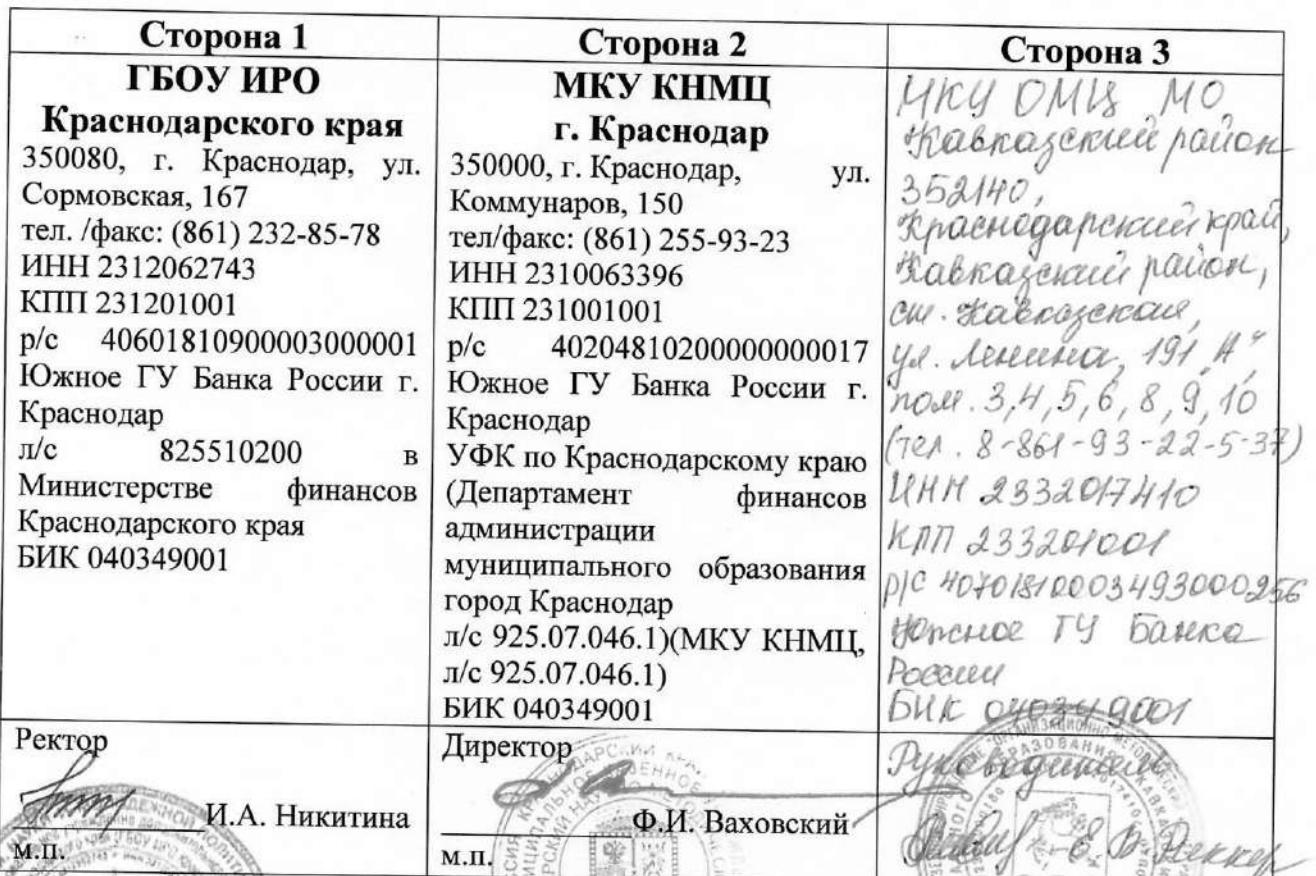 Сторона 1
ГБОУ ИРО
Краснодарского края
350080, г. Краснодар, ул.
Сормовская, 167
тел. /факс: (861) 232-85-78
ИНН 2312062743
КПП 231201001
р/с 40601810900003000001
Южное ГУ Банка России г.
Краснодар
л/с 825510200 в
Министерстве финансов
Краснодарского края
БИК 040349001
Ректор
И.А. Никитина
м.п.
Сторона 2
МКУ КНМЦ
г. Краснодар
350000, г. Краснодар, ул.
Коммунаров, 150
тел/факс: (861) 255-93-23
ИНН 2310063396
КПП 231001001
р/с 40204810200000000017
Южное ГУ Банка России г.
Краснодар
УФК по Краснодарскому краю
(Департамент финансов
администрации
муниципального образования
город Краснодар
л/с 925.07.046.1)(МКУ КНМЦ,
л/с 925.07.046.1)
БИК 040349001
Директор
Ф.И. Ваховский
м.п.
Сторона 3
МКУ ОМЦ МО
Кавказский район
352140,
Краснодарский край,
Кавказский район,
ст. Кавказская,
ул. Ленина, 191 "А",
пом. 3,4,5,6,8,9,10
(тел. 8-861-93-22-5-37)
ИНН 2332017410
КПП 233201001
р/с 40701810003493000256
Южное ГУ Банка
России
БИК 040349001
Руководитель